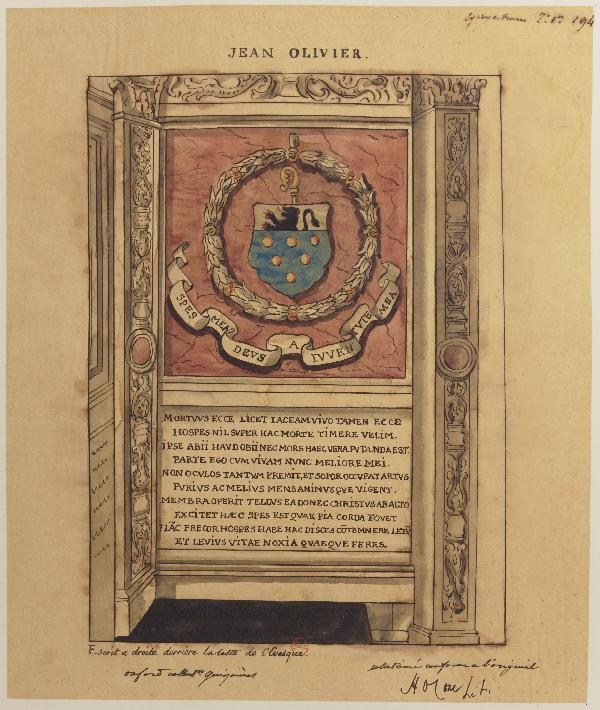 T. 1er. 194
JEAN OLIVIER.
SPES MEA DEVS A IVVENTVTE MEA
MORTVVS ECCE LICET IACEAM VIVO TAMEN ECCE
HOSPES NIL SVPER HAC MORTE TIMERE VELIM.
IPSE ABII HAVD OBII NEC MORS HAEC VERA PVTANDA EST.
PARTE EGO CVM VIVAM NVNC MELIORE MEI.
NON OCVLOS TANTVM PREMIT, ET SOPOR OCCVPAT ARTVS
PVRIVS AC MELIVS MENS ANIMVS QVE VIGENT.
MEMBRA OPERIT TELLVS EA DONEC CHRISTVS AB ALTO
EXCITET HÆC SPES EST QVAE PIA CORDA FOVET
HÃC PRECOR HOSPES HABE HAC DISCES CÕTEMNERE LETV
ET LEVIVS VITAE NOXIA QVAEQVE FERES.
Escrit a droite derriere la teste de l'Evesque.
oxford collect. Gaignières
collationné conforme a l'original